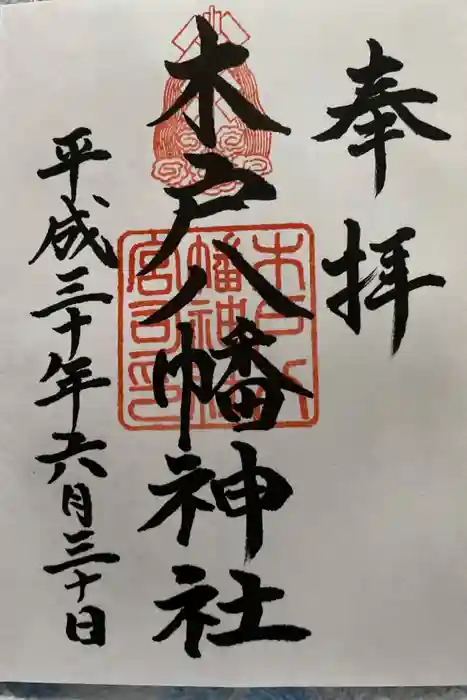 奉拝
木戸八幡神社
木戸八
幡神社
宮司印
平成三十年六月三十日